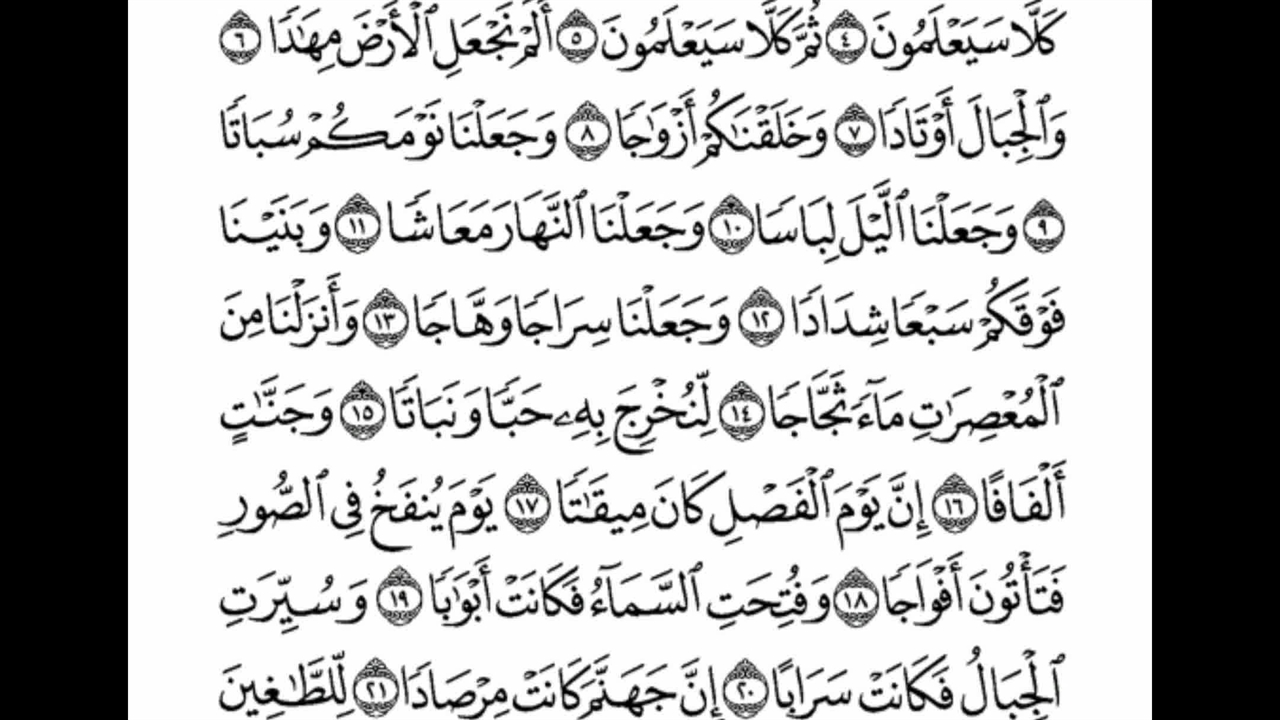 كَلَّا سَيَعۡلَمُونَ ٤ ثُمَّ كَلَّا سَيَعۡلَمُونَ ٥ أَلَمۡ نَجۡعَلِ ٱلۡأَرۡضَ مِهَٰدٗا ٦
وَٱلۡجِبَالَ أَوۡتَادٗا ٧ وَخَلَقۡنَٰكُمۡ أَزۡوَٰجٗا ٨ وَجَعَلۡنَا نَوۡمَكُمۡ سُبَاتٗا
٩ وَجَعَلۡنَا ٱلَّيۡلَ لِبَاسٗا ١٠ وَجَعَلۡنَا ٱلنَّهَارَ مَعَاشٗا ١١ وَبَنَيۡنَا
فَوۡقَكُمۡ سَبۡعٗا شِدَادٗا ١٢ وَجَعَلۡنَا سِرَاجٗا وَهَّاجٗا ١٣ وَأَنزَلۡنَا مِنَ
ٱلۡمُعۡصِرَٰتِ مَآءٗ ثَجَّاجٗا ١٤ لِّنُخۡرِجَ بِهِۦ حَبّٗا وَنَبَاتٗا ١٥ وَجَنَّٰتٍ
أَلۡفَافًا ١٦ إِنَّ يَوۡمَ ٱلۡفَصۡلِ كَانَ مِيقَٰتٗا ١٧ يَوۡمَ يُنفَخُ فِي ٱلصُّورِ
فَتَأۡتُونَ أَفۡوَاجٗا ١٨ وَفُتِحَتِ ٱلسَّمَآءُ فَكَانَتۡ أَبۡوَٰبٗا ١٩ وَسُيِّرَتِ
ٱلۡجِبَالُ فَكَانَتۡ سَرَابًا ٢٠ إِنَّ جَهَنَّمَ كَانَتۡ مِرۡصَادٗا ٢١ لِّلطَّٰغِينَ